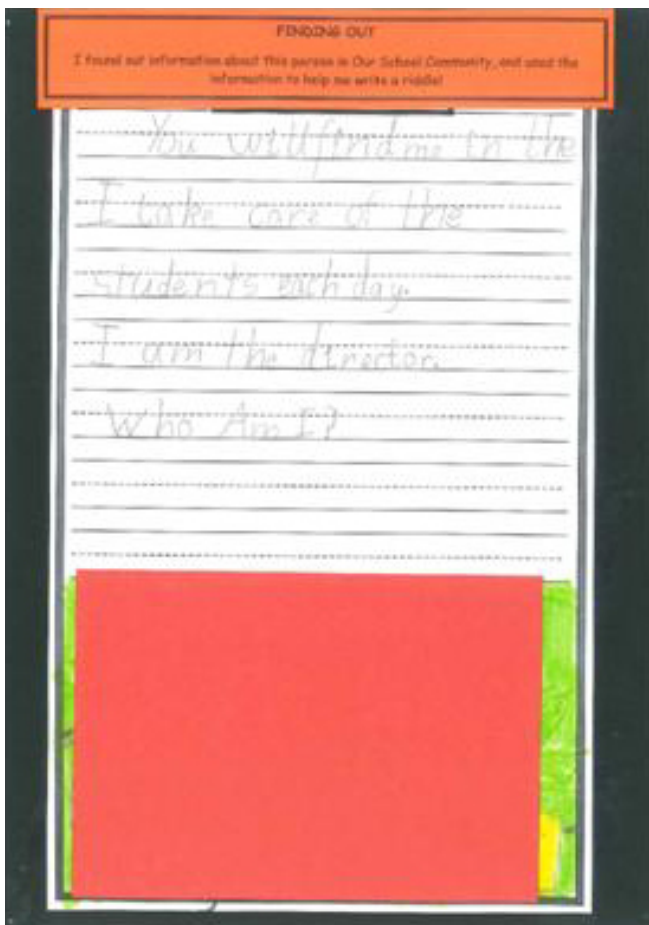 FINDING OUT
I found out information about this person in Our School Community, and used the
information to help me write a riddle!
You will find me in the
I take care of the
students each day.
I am the director.
Who Am I?